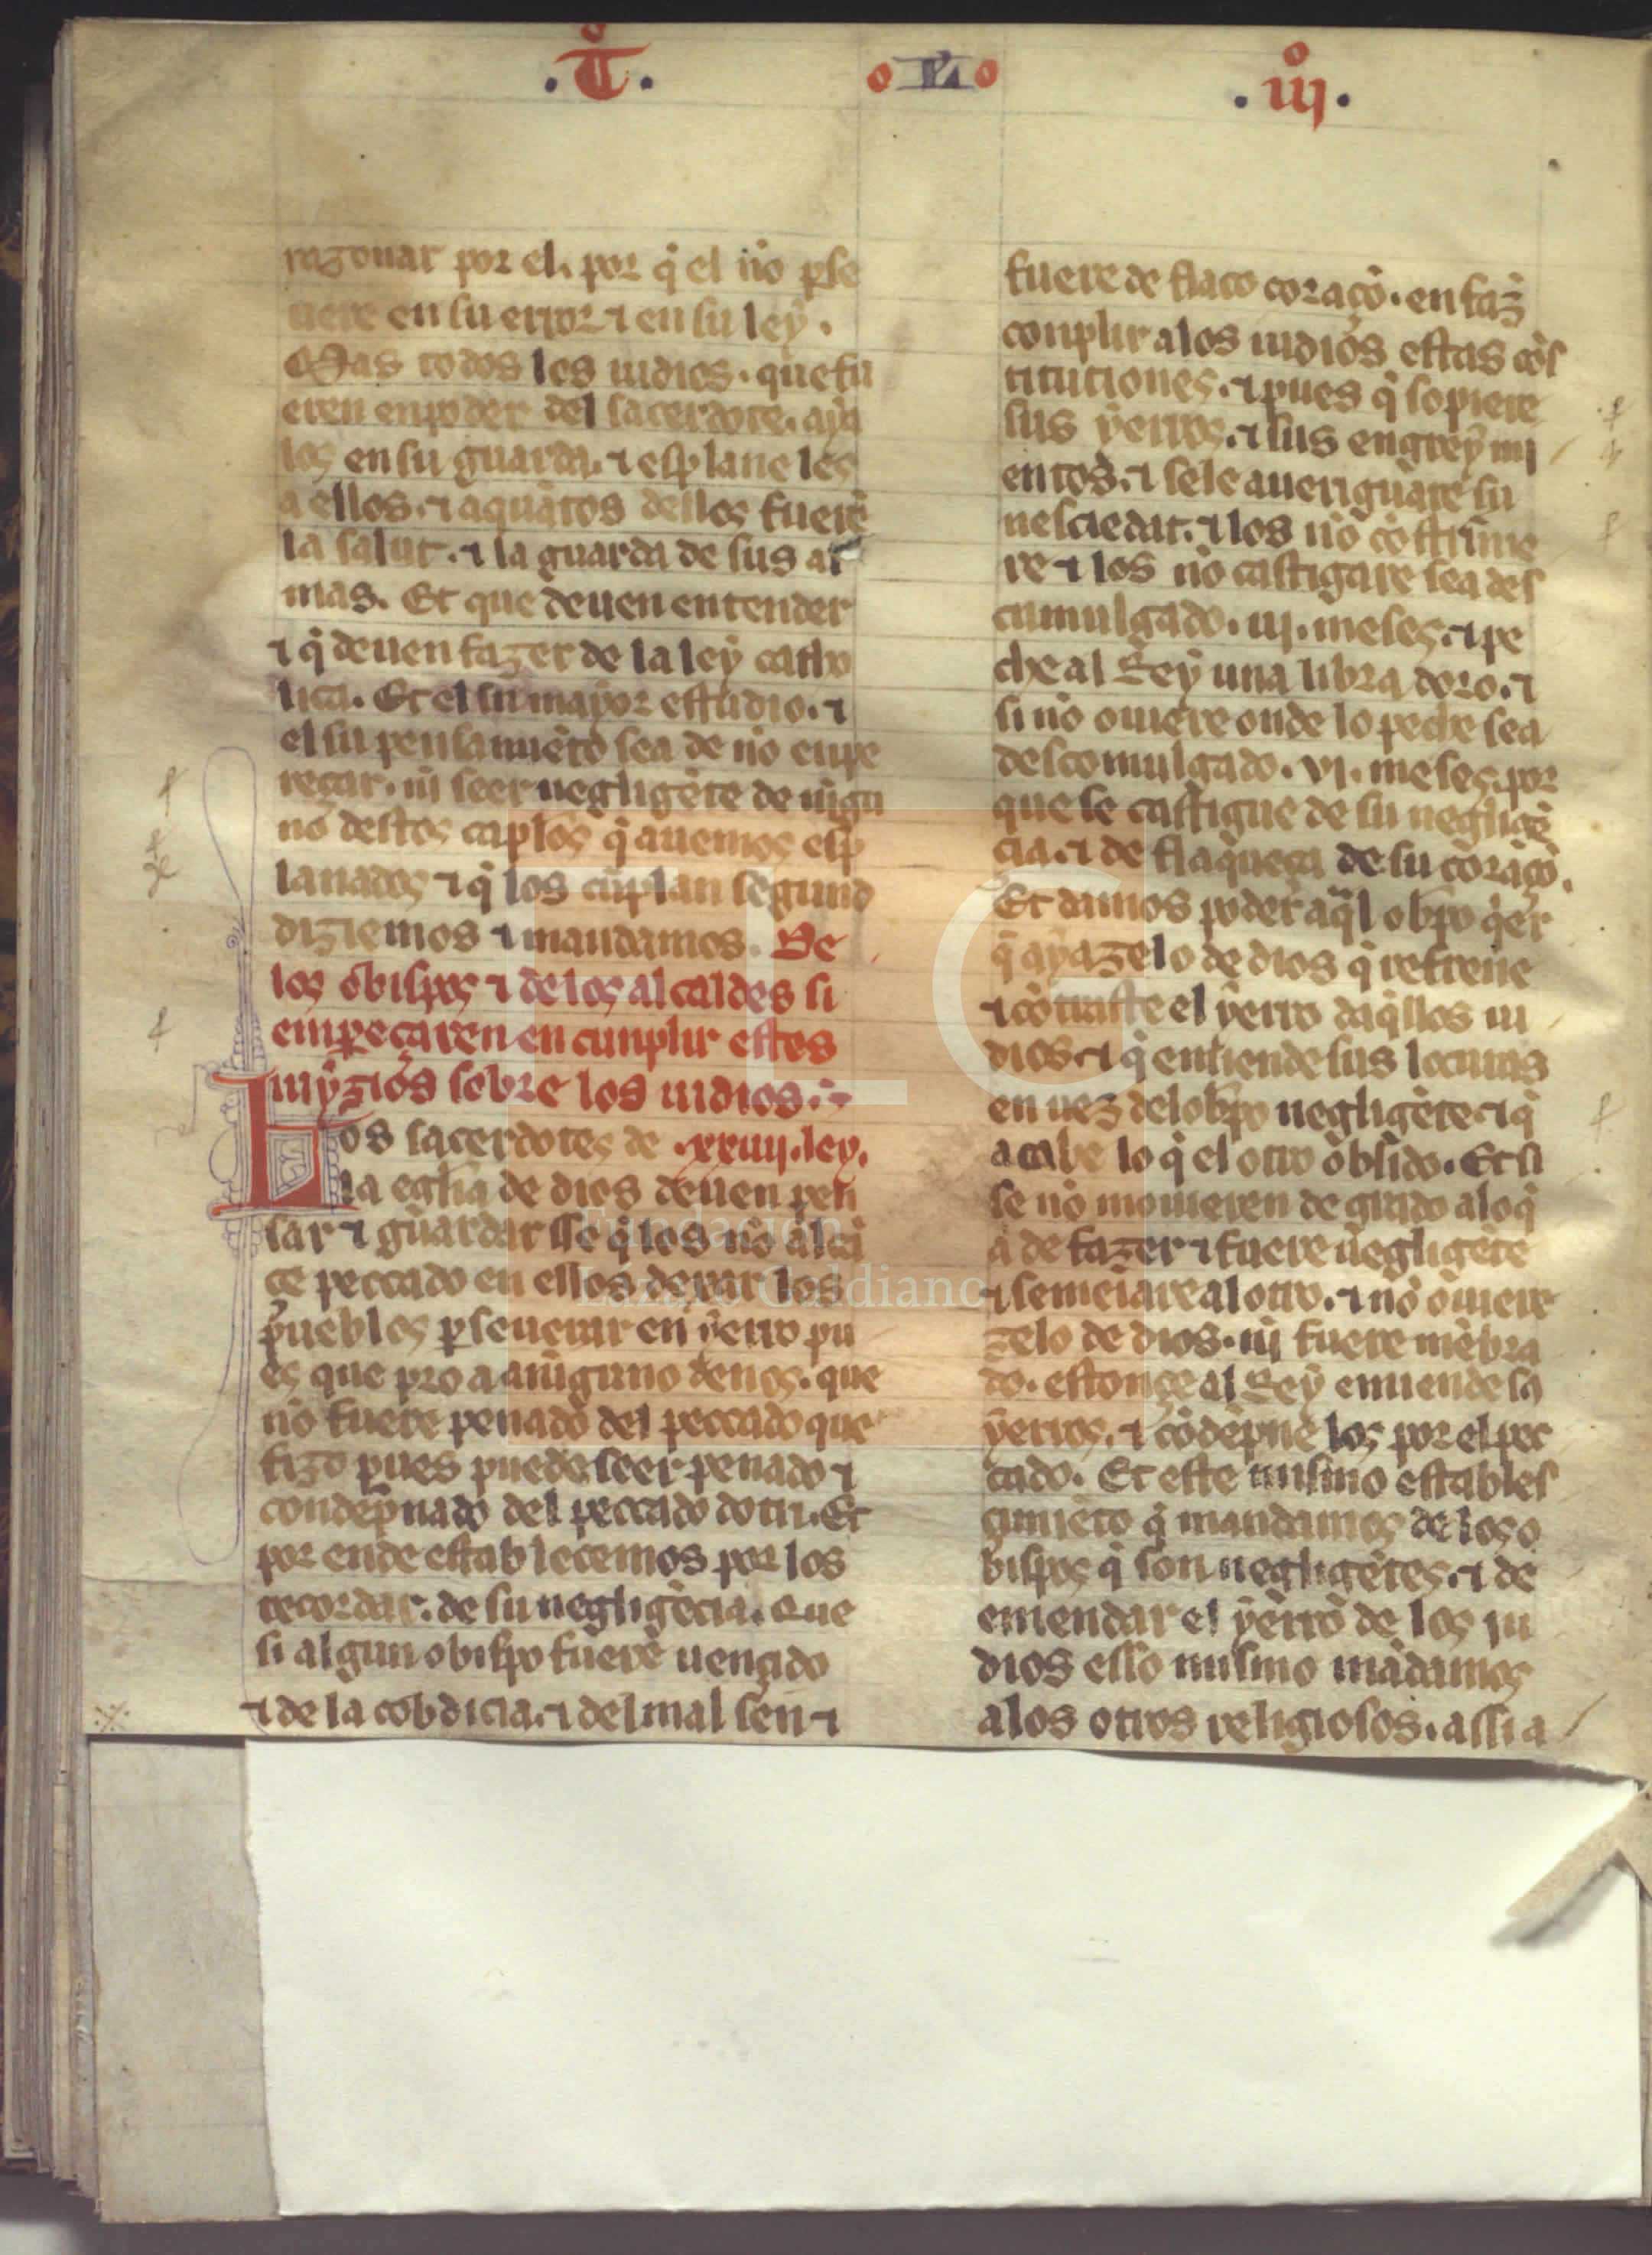 .T̊. L .iij̊.
razonar por el. por q̇ el no perse
uere en su error ⁊ en su ley.
Mas todos los iudios. que fu
eren en poder del sacerdote. aya
los en su guarda. ⁊ esplane les
a ellos. ⁊ a quãtos dellos fuerẽ
la salut. ⁊ la guarda de sus al
mas. Et que deuen entender
⁊ q̇ deuen fazer de la ley catho
lica. Et el su mayor estudio. ⁊
el su pensamiẽto sea de no enpe
reçar. ni seer negligẽte de nĩgu
no destos caplos q̇ auemos esp
lanados ⁊ q̇ los cũplan segund
diziemos ⁊ mandamos. De
los obispos ⁊ de los alcaldes si
enpeçaren en cunplir estos
iuyzios sobre los iudios.
Los sacerdotes de .xxiiij. ley.
la eglia de dios deuen pen
sar ⁊ guardar sse q̇ los no alcã
ce peccado en ellos dexar los
pueblos perseuerar en yerro pu
es que pro a aniguno de nos. que
no fuere penado del peccado que
fizo pues puede seer penado ⁊
condepnado del peccado dotri. Et
por ende establecemos por los
recordar. de su negligẽcia. Que
si algun obispo fuere uençido
⁊ de la cobdicia. ⁊ del mal sen ⁊
fuere de flaco coraçõ. en faz̃
conplir a los iudios estas cõs
tituciones. ⁊ pues q̇ sopiere
sus yerros. ⁊ sus engreymi
entos. ⁊ sele aueriguare su
nesciedat. ⁊ los no cõstrinie
re ⁊ los no castigare sea des
cumulgado. iij. meses. ⁊ pe
che al Rey una libra doro. ⁊
si no ouiere onde lo peche sea
descomulgado. vj. meses. por
que se castigue de su negligẽ
cia. ⁊ de flaqueça de su coraçõ.
Et damos poder aq̃l obpo q̇er
q̇ aya zelo de dios q̇ refrene
⁊ cõtraste el yerro daq̃llos iu
dios. ⁊ q̇ entiende sus locuras
en uez del obpo negligẽte. ⁊ q̇
acabe lo q̇ el otro obsido. Et si
se no mouieren de grado a lo q̇
a de fazer ⁊ fuere negligẽte
⁊ semeiare al otro. ⁊ no ouiere
zelo de dios. nj fuere mẽbra
do. estonçe al Rey emiende la
yerros. ⁊ cõdepne los por el pec
cado. Et este mismo establesc
çimiẽto q̇ mandamos de los o
bispos q̇ son negligẽtes. ⁊ de
emendar el yerro de los ju
dios esso mismo mãdamos
a los otros religiosos. assi a
FLG
Fundación
Lázaro Galdiano